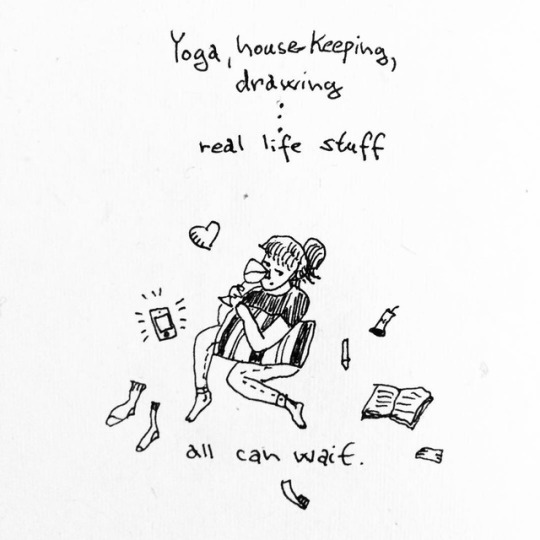 Yoga, house-keeping,
drawing
⋮
real life stuff
all can wait.